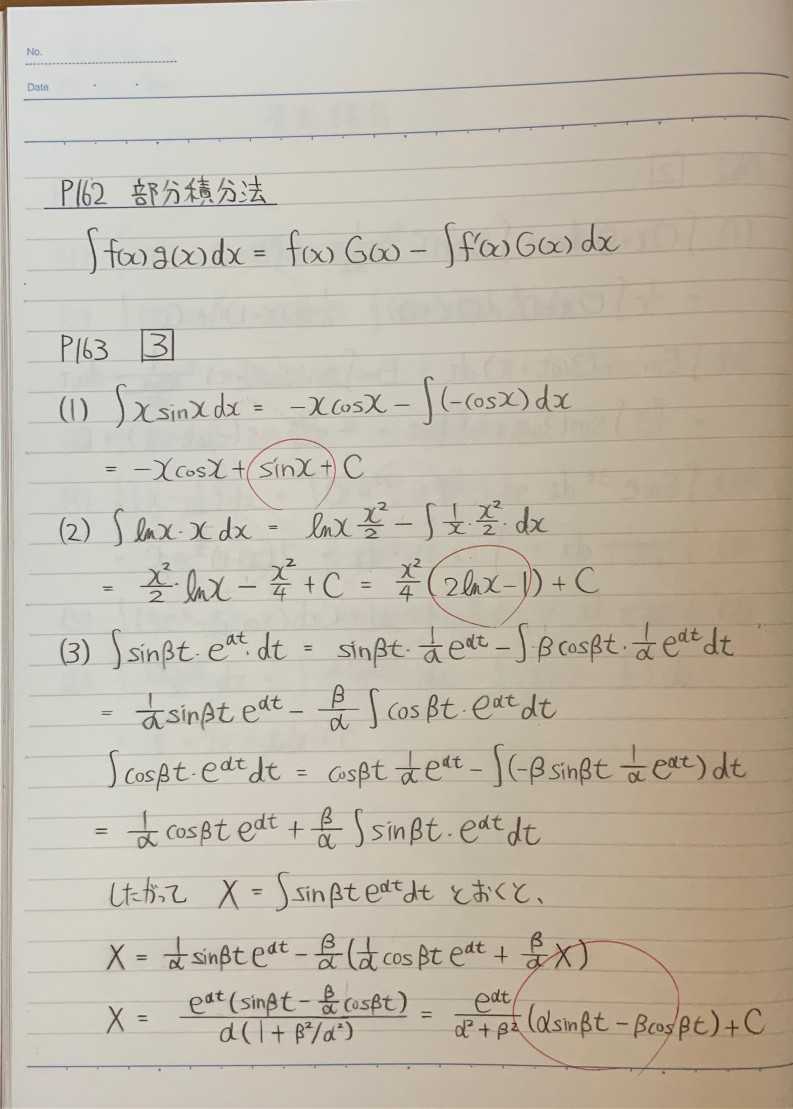 No.
Date
P162 部分積分法
∫f(x)g(x)dx = f(x)G(x) − ∫f'(x)G(x)dx
P163 3
(1) ∫x sinx dx = −x cosx − ∫(−cosx)dx
= −x cosx + sinx + C
(2) ∫lnx・x dx = lnx x²/2 − ∫1/x・x²/2・dx
= x²/2・lnx − x²/4 + C = x²/4(2lnx−1) + C
(3) ∫sinβt・e^αt・dt = sinβt・1/α e^αt − ∫βcosβt・1/α e^αt dt
= 1/α sinβt e^αt − β/α ∫cosβt・e^αt dt
∫cosβt・e^αt dt = cosβt 1/α e^αt − ∫(−β sinβt 1/α e^αt)dt
= 1/α cosβt e^αt + β/α ∫sinβt・e^αt dt
したがって X = ∫sinβt e^αt dt とおくと、
X = 1/α sinβt e^αt − β/α(1/α cosβt e^αt + β/α X)
X = e^αt(sinβt − β/α cosβt)/α(1+β²/α²) = e^αt/α²+β² (αsinβt − βcosβt) + C